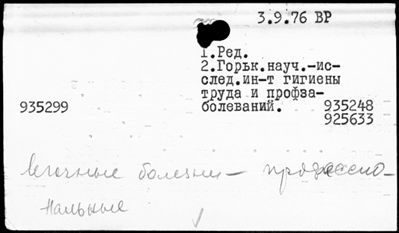 3.9.76 ВР
1.Ред.
2.Горьк.науч.-ис-
след.ин-т гигиены
труда и профза-
935299 болеваний. 935248
925633
легочные болезни – профессио-
нальные